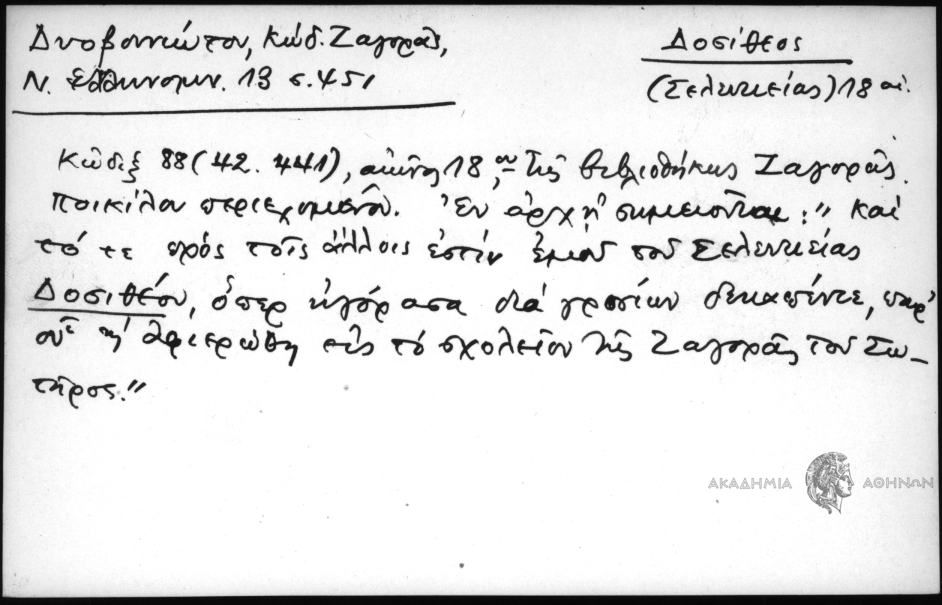 Δυοβουνιώτου, Κώδ. Ζαγορᾶς,
Ν. Ἑλληνομν. 13 σ. 451
Δοσίθεος
(Σελευκείας) 18 αἰ.
Κῶδιξ 88 (42. 441), αἰῶνος 18ου, τῆς βιβλιοθήκης Ζαγορᾶς.
ποικίλου περιεχομένου. Ἐν ἀρχῇ σημειοῦται: " Καί
τό τε πρός τοῖς ἄλλοις ἐστίν ἐμοῦ τοῦ Σελευκείας
Δοσιθέου, ὅπερ ἠγόρασα διά γροσίων δεκαπέντε, παρ'
οὗ καί ἀφιερώθη εἰς τό σχολεῖον τῆς Ζαγορᾶς τοῦ Σω-
τῆρος."
ΑΚΑΔΗΜΙΑ ΑΘΗΝΩΝ